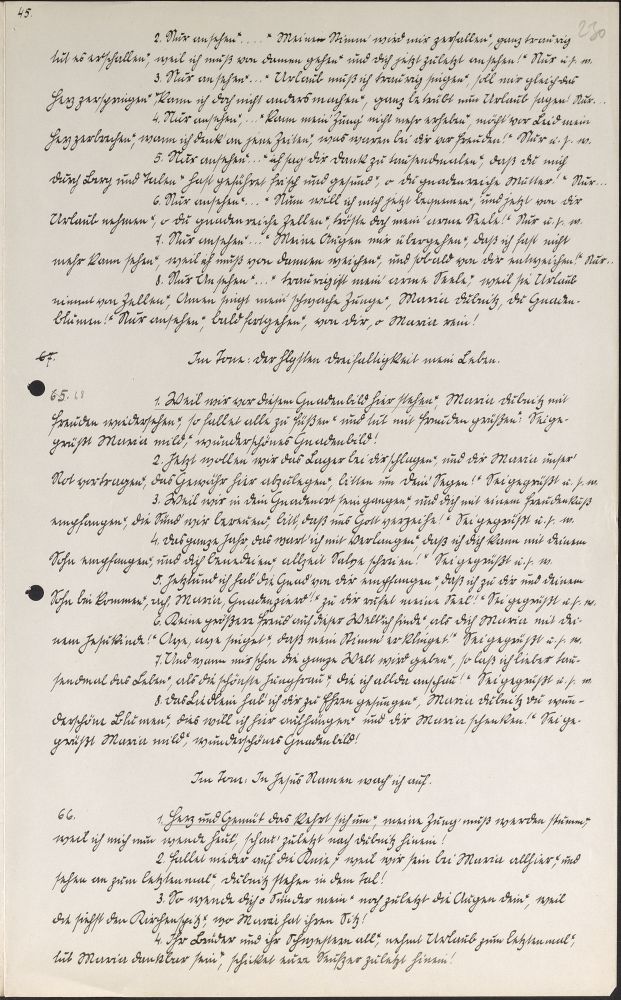 45.
230
2. Nur ansehen"...." Meine Stimm wird mir zerfallen", ganz traurig
tut es erschallen", weil ich muß von dannen gehen" und dich jetzt zuletzt ansehen!" Nur u. s. w.
3. Nur ansehen"..." Urlaub muß ich traurig singen", soll mir gleich das
Herz zerspringen" Kann ich doch nicht anders machen", ganz betrübt nun Urlaub sagen! Nur...
4. Nur ansehen"..." Kann mein Zung nicht mehr erheben", möcht vor Leid mein
Herz zerbrechen", wann ich denk an jene Zeiten", was waren bei dir vor Freuden!" Nur u. s. w.
5. Nur ansehen"..." ich sag dir Dank zu tausendmalen", daß du mich
durch Berg und Talen" hast geführet frisch und gesund", o du gnadenreiche Mutter!" Nur...
6. Nur ansehen"..." Nun will ich mich jetzt bequemen", und jetzt von dir
Urlaub nehmen", o du gnadenreiche Zellen", tröste doch mein arme Seele!" Nur u. s. w.
7. Nur ansehen"..." Meine Augen mir übergehen", daß ich fast nicht
mehr kann sehen", weil ich muß von dannen weichen", und sobald von dir entweichen!" Nur...
8. Nur Ansehen"..." traurig ist mein arme Seele", weil sie Urlaub
nimmt von Zellen", Amen singt mein schwache Zunge", Maria Dubnitz, du Gnaden-
blumen!" Nur ansehen", bald fortgehen", von dir, o Maria rein!
67. Im Tone: Der Hlgsten Dreifaltigkeit mein Leben.
65. 68 1. Weil wir vor diesem Gnadenbild hier stehen", Maria Dubnitz mit
Freuden wiedersehen", so fallet alle zu Füßen" und tut mit Freuden grüßen: Seige-
grüßt Maria mild", wunderschönes Gnadenbild!
2. Jetzt wollen wir das Lager bei dir schlagen", und dir Maria unser
Not vortragen", das Gewehr hier abzulegen", bitten um dein Segen!" Sei gegrüßt u. s. w.
3. Weil wir in dein Gnadenort sein gangen", und dich mit einem Freudenkuß
empfangen", die Sünd wir bereuen", bitt, daß uns Gott verzeihe!" Sei gegrüßt u. s. w.
4. Das ganze Jahr, das wart ich mit Verlangen", daß ich dich kann mit deinem
Sohn empfangen", und dich benedeien", allzeit Salve schreien!" Sei gegrüßt u. s. w.
5. Jetzund ich hab die Gnad von dir empfangen", daß ich zu dir und deinem
Sohn bin kommen", ach, Maria, Gnadenzierd!" zu dir rufet meine Seel!" Sei gegrüßt u. s. w.
6. Keine größere Freud auf dieser Welt ich finde" als dich Maria mit dei-
nem Jesukinde!" Ave, ave singet", daß mein Stimm erklinget!" Sei gegrüßt u. s. w.
7. Und wann mir schon die ganze Welt wird geben", so laß ich lieber tau-
sendmal das Leben", als die schönste Jungfrau", die ich allda anschau!" Sei gegrüßt u. s. w.
8. Das Liedlein hab ich dir zu Ehren gesungen", Maria Dubnitz du wun-
derschöne Blumen", dies will ich hier aufhängen" und dir Maria schenken!" Sei ge-
grüßt Maria mild", wunderschönes Gnadenbild!
Im Tone: In Jesus Namen wach ich auf.
66. 1. Herz und Gemüt das kehrt sich um", meine Zung muß werden stumm",
weil ich mich nun wende heut", schau zuletzt nach Dubnitz hinein!
2. Fallet nieder auf die Knie", weil wir sein bei Maria allhier" und
sehen an zum letztenmal", Dubnitz stehen in dem Tal!
3. So wende dich o Sünder mein" noch zuletzt die Augen dein", weil
du siehst den Kirchenspitz", wo Maria hat ihren Sitz!
4. Ihr Brüder und ihr Schwestern all", nehmt Urlaub zum letztenmal",
tut Maria dankbar sein", schicket eure Seufzer zuletzt hinein!